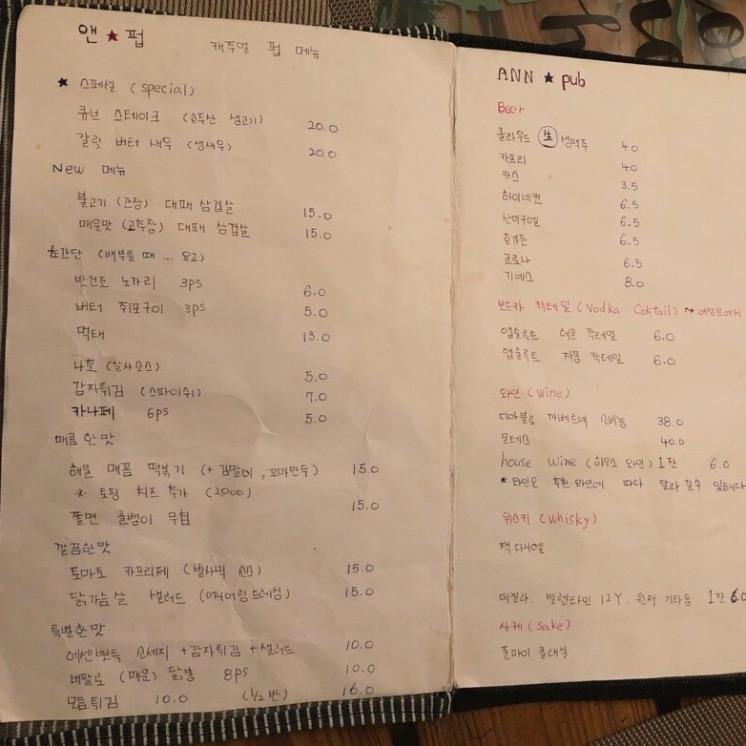 앤★펍 캐주얼 펍 메뉴
★ 스페셜 (special)
큐브 스테이크 (호주산 생고기) 20.0
갈릭 버터 새우 (생새우) 20.0
New 메뉴
불고기 (간장) 대패 삼겹살 15.0
매운맛 (고추장) 대패 삼겹살 15.0
초간단 (배부를 때 ... 요고)
반건조 노가리 3ps 6.0
버터 쥐포구이 3ps 5.0
먹태 13.0
나초 (살사소스) 5.0
감자튀김 (스파이쉬) 7.0
카나페 6ps 5.0
매콤한맛
해물 매콤 떡볶기 (+김말이, 꼬마만두) 15.0
※ 토핑 치즈 추가 (2000)
쫄면 골뱅이 무침 15.0
깔끔한맛
토마토 카프리제 (발사믹 소스) 15.0
닭가슴살 샐러드 (드레싱) 15.0
특별한맛
에센뽀득 소세지 +감자튀김 +샐러드 10.0
버팔로 (매운) 닭봉 8ps 10.0
모듬튀김 10.0 (1/2반) 16.0
ANN ★ pub
Beer
클라우드 生 생맥주 4.0
카프리 4.0
카스 3.5
하이네켄 6.5
산미구엘 6.5
호가든 6.5
코로나 6.5
기네스 8.0
보드카 칵테일 (Vodka Coktail)
앱솔루트 레몬 칵테일 6.0
앱솔루트 자몽 칵테일 6.0
와인 (Wine)
디아블로 까베르네 소비뇽 38.0
몬테스 40.0
house wine (하우스 와인) 1잔 6.0
★ 와인은 추천 와인에 따라 달라질수 있습니다
위스키 (Whisky)
잭 다니엘
데킬라. 발렌타인 12Y. 윈저 기타등 1잔 6.0
사케 (Sake)
준마이 클래식